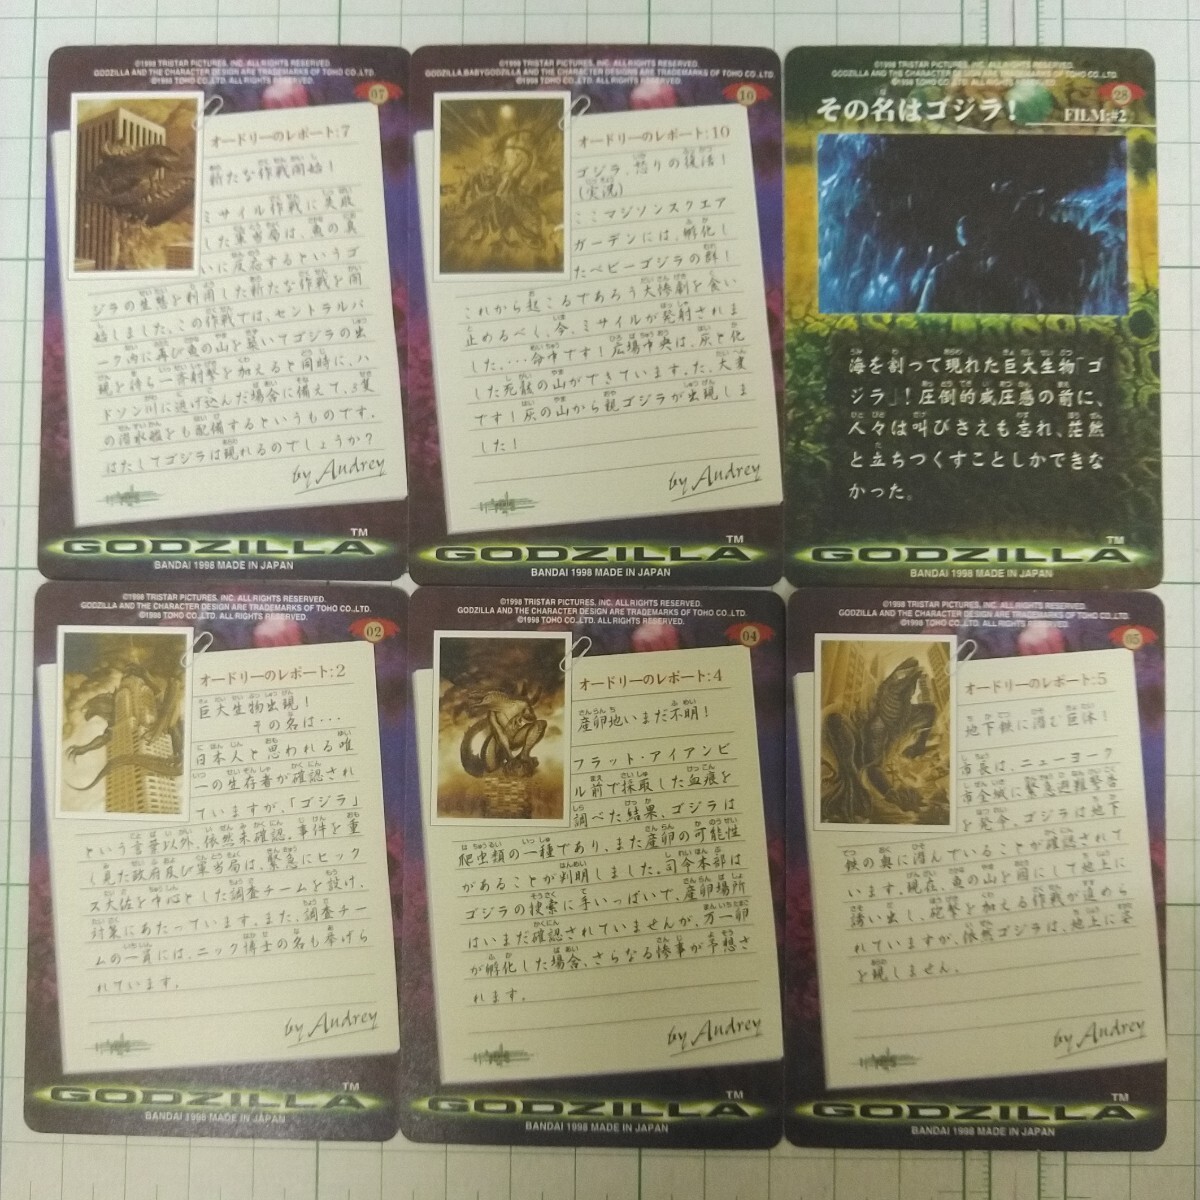 ©1998 TRISTAR PICTURES, INC. ALL RIGHTS RESERVED.
GODZILLA AND THE CHARACTER DESIGN ARE TRADEMARKS OF TOHO CO.,LTD.
©1998 TOHO CO.,LTD. ALL RIGHTS RESERVED.
07
オードリーのレポート:7
新たな作戦開始!
ミサイル作戦に失敗
した軍当局は、魚の臭
いに反応するというゴ
ジラの生態を利用した新たな作戦を開
始しました。この作戦では、セントラルパ
ーク内に再び魚の山を築いてゴジラの出
現を待ち一斉射撃を加えると同時に、ハ
ドソン川に逃げ込んだ場合に備えて、3隻
の潜水艦をも配備するというものです。
はたしてゴジラは現れるのでしょうか?
by Audrey
GODZILLA TM
BANDAI 1998 MADE IN JAPAN
©1998 TRISTAR PICTURES, INC. ALL RIGHTS RESERVED.
GODZILLA,BABYGODZILLA AND THE CHARACTER DESIGNS ARE TRADEMARKS OF TOHO CO.,LTD.
©1998 TOHO CO.,LTD. ALL RIGHTS RESERVED.
10
オードリーのレポート:10
ゴジラ、怒りの復活!
(実況)
ここマジソンスクエア
ガーデンには、孵化し
たベビーゴジラの群!
これから起こるであろう大惨劇を食い
止めるべく、今、ミサイルが発射されま
した、…命中です!広場中央は、灰と化
した死骸の山ができています。た、大変
です!灰の山から親ゴジラが出現しま
した!
by Audrey
GODZILLA TM
BANDAI 1998 MADE IN JAPAN
©1998 TRISTAR PICTURES, INC. ALL RIGHTS RESERVED.
GODZILLA AND THE CHARACTER DESIGN ARE TRADEMARKS OF TOHO CO.,LTD.
©1998 TOHO CO.,LTD. ALL RIGHTS RESERVED.
28
その名はゴジラ!
FILM:#2
海を割って現れた巨大生物「ゴ
ジラ」!圧倒的威圧感の前に、
人々は叫びさえも忘れ、茫然
と立ちつくすことしかできな
かった。
GODZILLA TM
BANDAI 1998 MADE IN JAPAN
©1998 TRISTAR PICTURES, INC. ALL RIGHTS RESERVED.
GODZILLA AND THE CHARACTER DESIGN ARE TRADEMARKS OF TOHO CO.,LTD.
©1998 TOHO CO.,LTD. ALL RIGHTS RESERVED.
02
オードリーのレポート:2
巨大生物出現!
その名は…
日本人と思われる唯
一の生存者が確認され
ていますが、「ゴジラ」
という言葉以外、依然未確認。事件を重
く見た政府及び軍当局は、緊急にヒック
ス大佐を中心とした調査チームを設け、
対策にあたっています。また、調査チー
ムの一員には、ニック博士の名も挙げら
れています。
by Audrey
GODZILLA TM
BANDAI 1998 MADE IN JAPAN
©1998 TRISTAR PICTURES, INC. ALL RIGHTS RESERVED.
GODZILLA AND THE CHARACTER DESIGN ARE TRADEMARKS OF TOHO CO.,LTD.
©1998 TOHO CO.,LTD. ALL RIGHTS RESERVED.
04
オードリーのレポート:4
産卵地いまだ不明!
フラット・アイアンビ
ル前で採取した血痕を
調べた結果、ゴジラは
爬虫類の一種であり、また産卵の可能性
があることが判明しました。司令本部は
ゴジラの捜索に手いっぱいで、産卵場所
はいまだ確認されていませんが、万一卵
が孵化した場合、さらなる惨事が予想さ
れます。
by Audrey
GODZILLA TM
BANDAI 1998 MADE IN JAPAN
©1998 TRISTAR PICTURES, INC. ALL RIGHTS RESERVED.
GODZILLA AND THE CHARACTER DESIGN ARE TRADEMARKS OF TOHO CO.,LTD.
©1998 TOHO CO.,LTD. ALL RIGHTS RESERVED.
05
オードリーのレポート:5
地下鉄に潜む巨体!
市長は、ニューヨーク
市全域に緊急避難警告
を発令。ゴジラは地下
鉄の奥に潜んでいることが確認されて
います。現在、魚の山を囮にして地上に
誘い出し、砲撃を加える作戦が進めら
れていますが、依然ゴジラは、地上に姿
を現しません。
by Audrey
GODZILLA TM
BANDAI 1998 MADE IN JAPAN